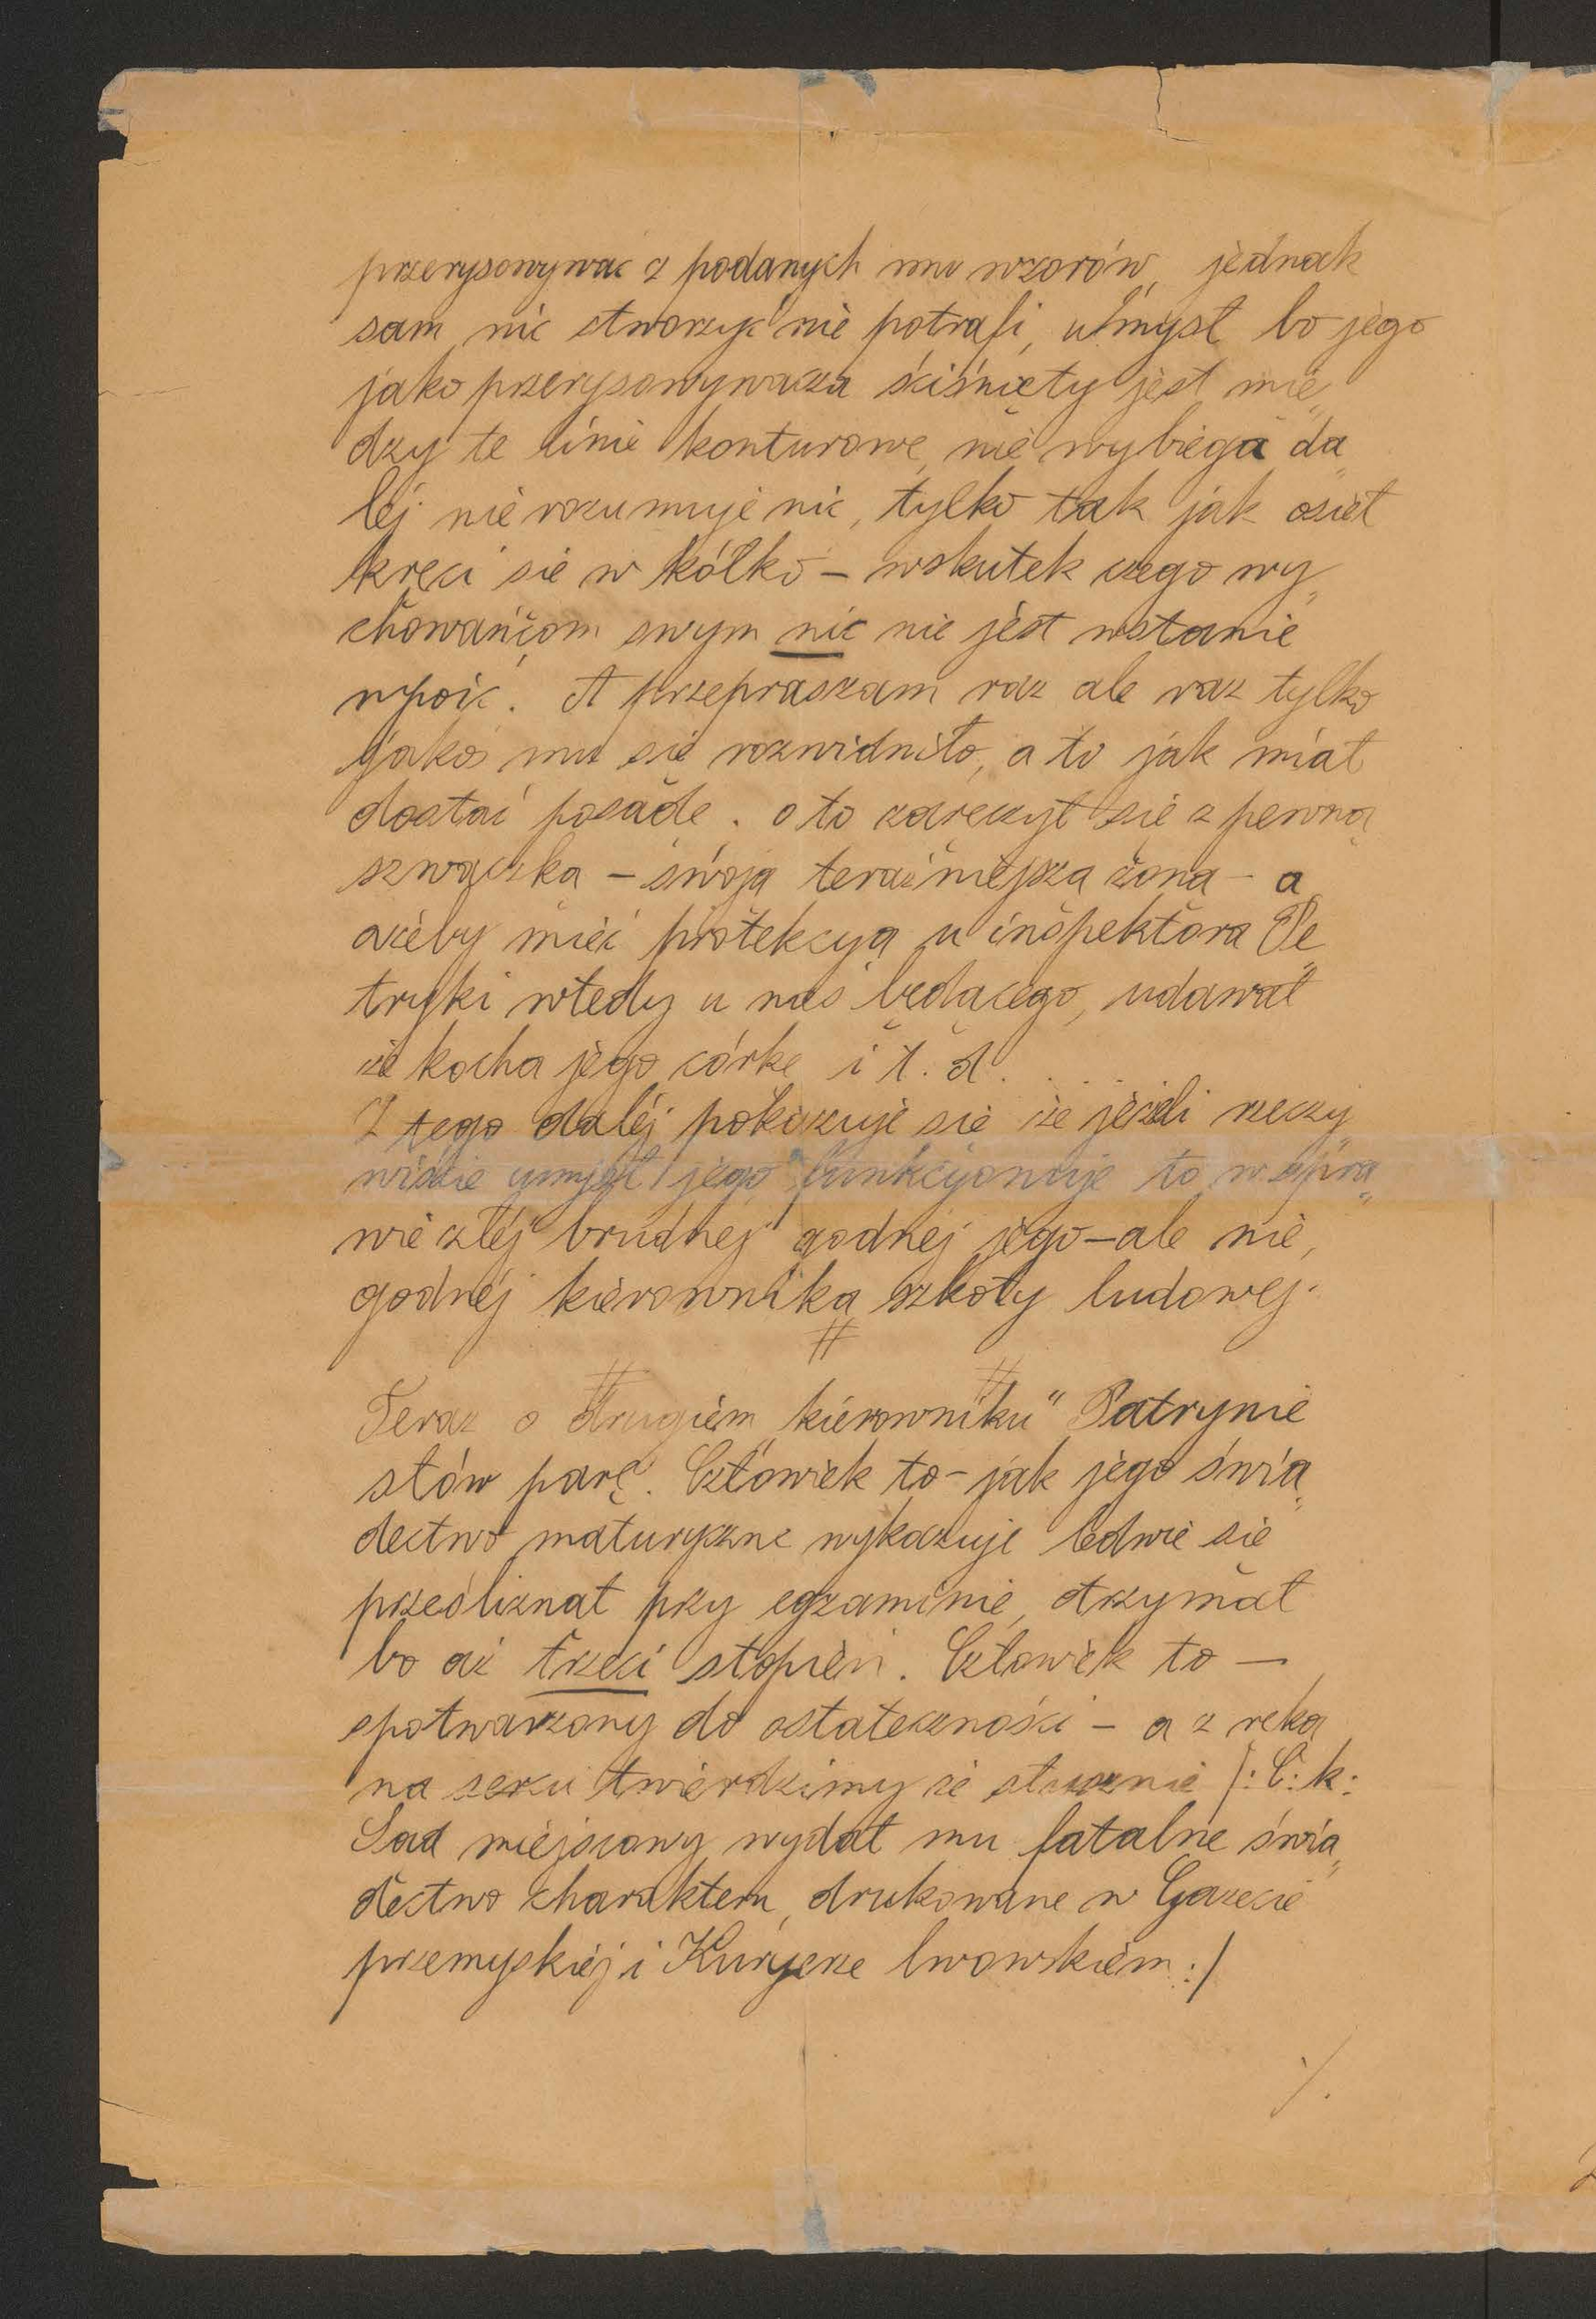 przerysowywać z podanych mu wzorów, jednak
sam nic stworzyć nie potrafi, umysł bo jego
jako przerysowywacza ściśnięty jest mię„
dzy te linie konturowe, nie wybiega da„
léj nie rozumuje nic, tylko tak jak osieł
kręci się w kółko – wskutek czego wy„
chowańcom swym nic nie jest wstanie
wpoić. A przepraszam raz ale raz tylko
jakoś mu się rozwidniło, a to jak miał
dostać posadę. oto zaręczył się z pewną
szwaczką – swoją teraźniejszą żoną – a
ażeby mieć protekcyą u inspektora Pe„
tryki wtedy u nas będącego, udawał
że kocha jego córkę i t. d. . . . .
Z tego daléj pokazuje się że jeżeli rzeczy„
wiście umysł jego funkcyonuje to w spra„
wie złéj brudnej godnej jego – ale nie„
godnéj kierownika szkoły ludowej.
#
# #
Teraz o drugiém „kierowniku“ Patrynie
słów parę. Człowiek to – jak jego świa„
dectwo maturyczne wykazuje ledwie się
prześliznął przy egzaminie, otrzymał
bo aż trzeci stopień. Człowiek to –
spotwarzony do ostateczności – a z ręką
na sercu twierdzimy że słusznie /: C: k:
Sąd miejscowy wydał mu fatalne świa„
dectwo charakteru, drukowane w Gazecie
przemyskiéj i Kuryerze lwowskiém :/
./.